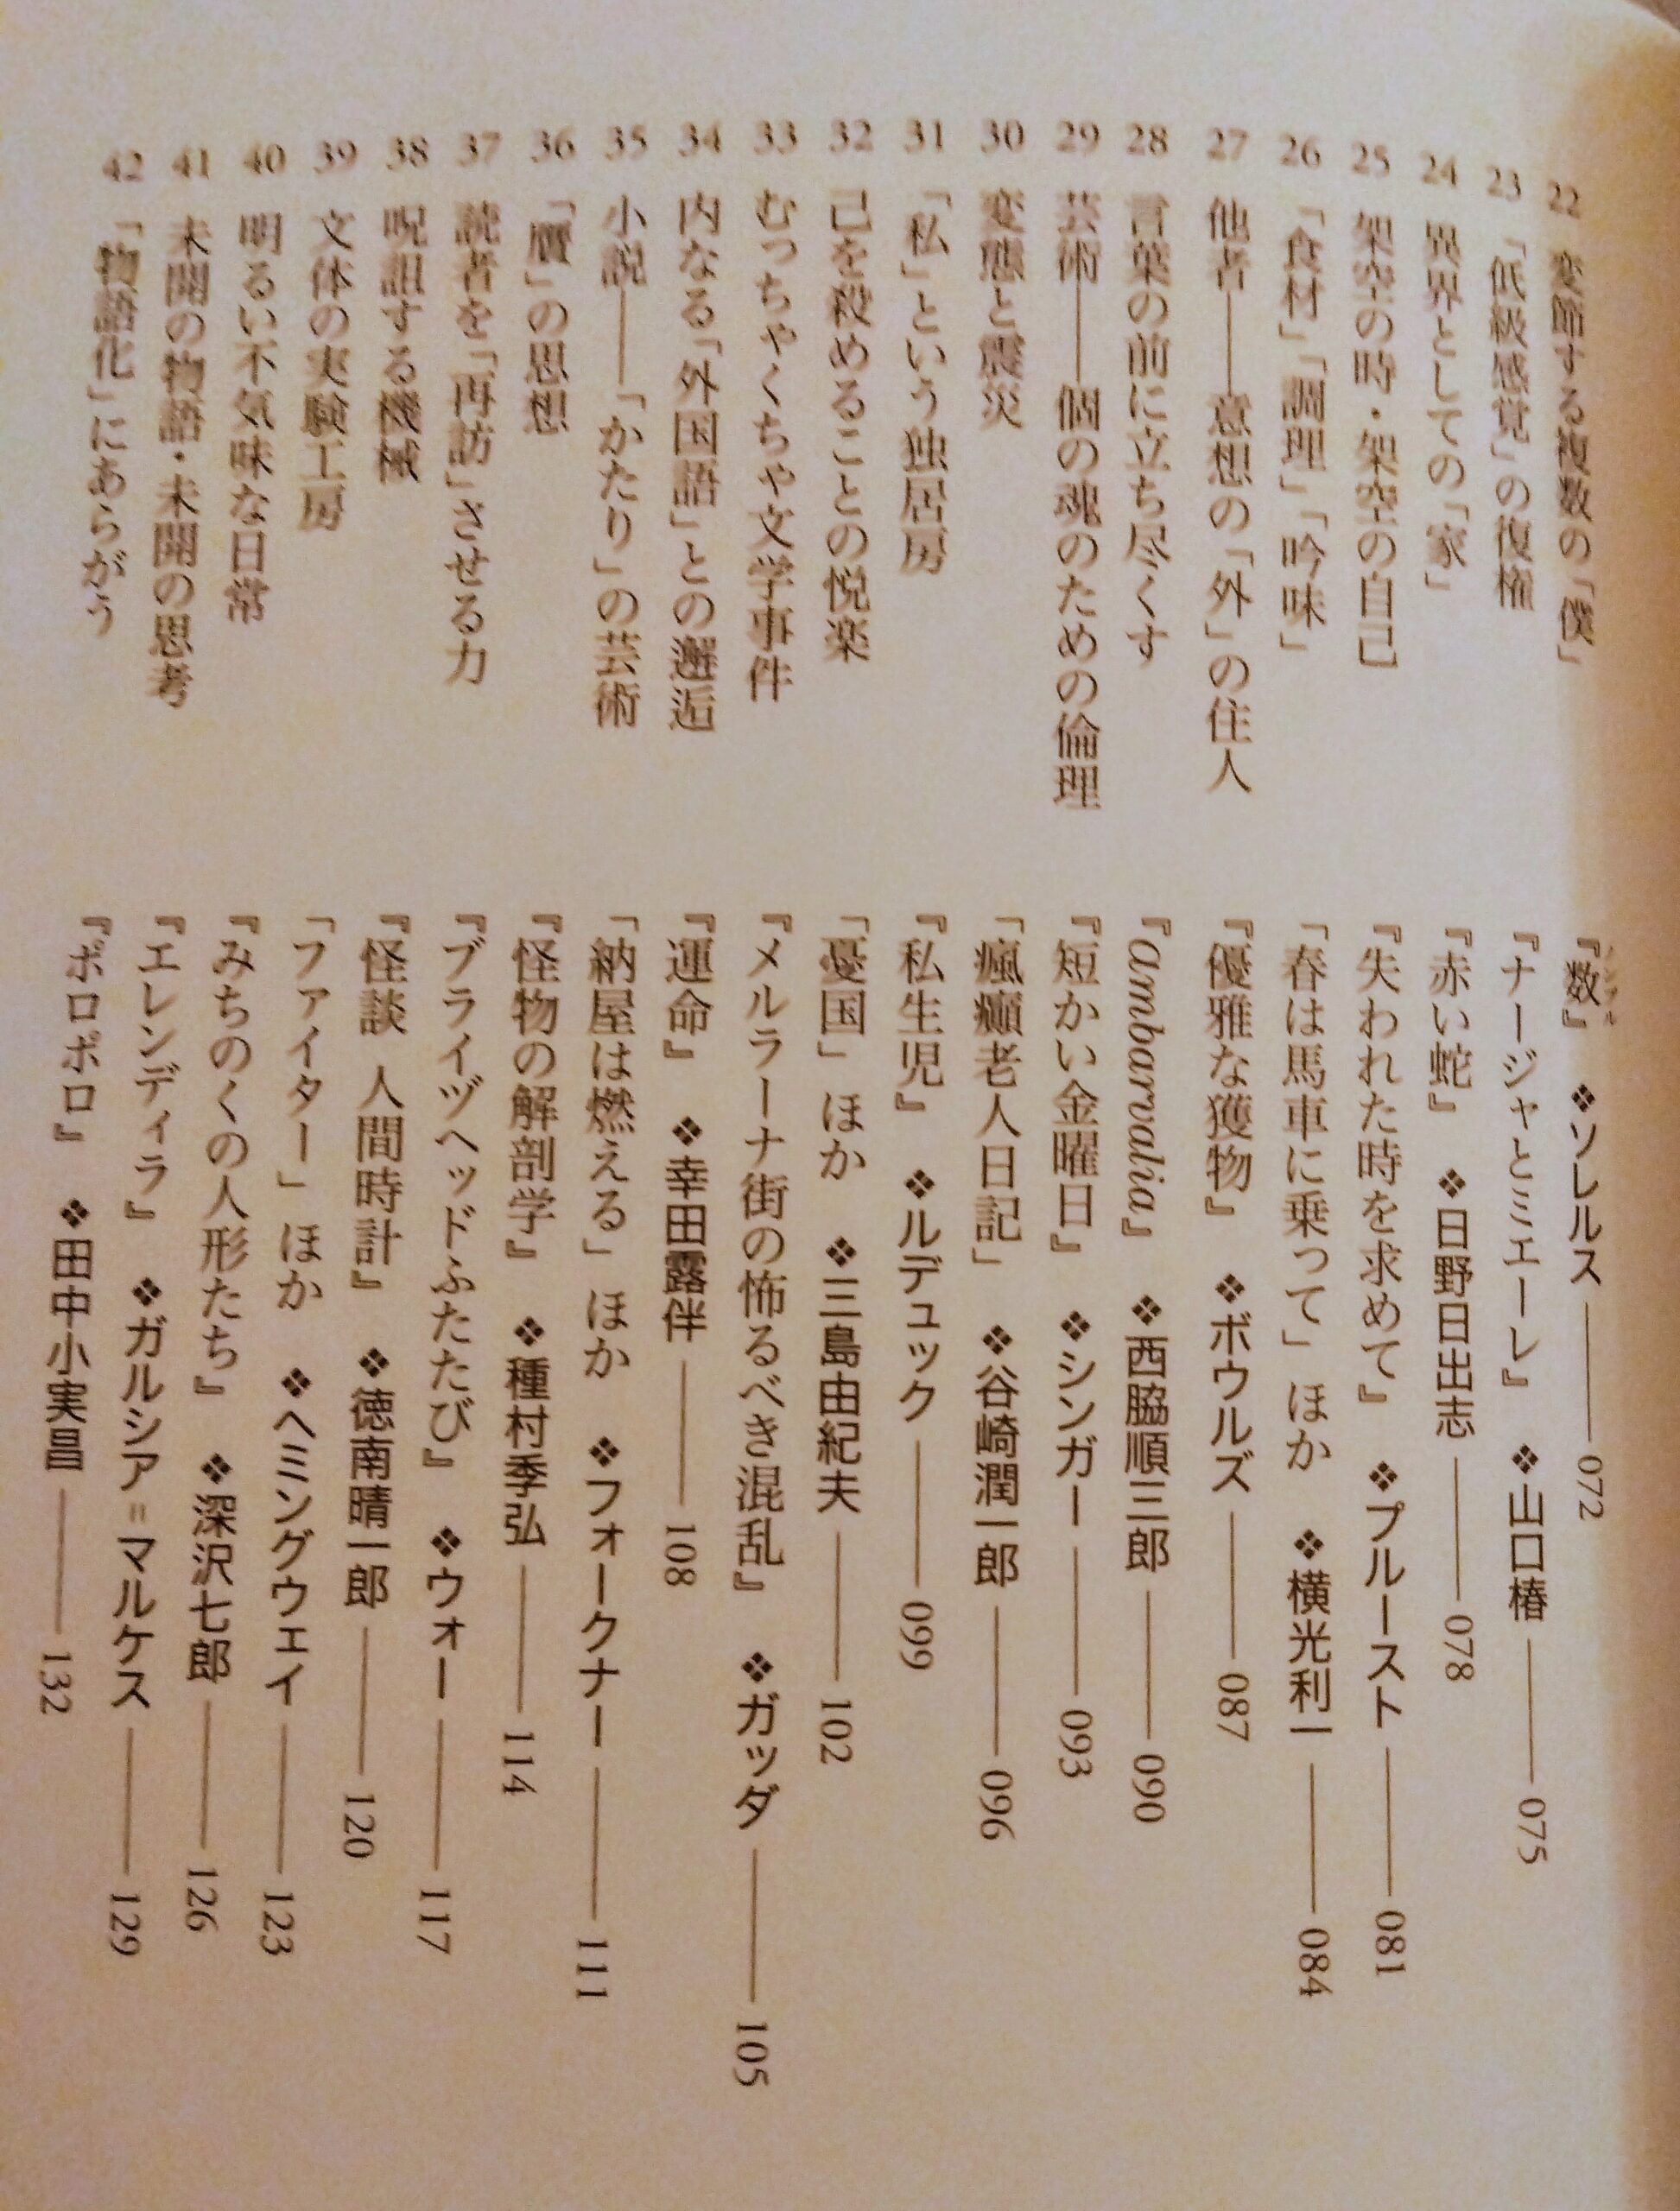 22 変節する複数の「僕」 『数』 ❖ソレルス──072
23 「低級感覚」の復権 『ナージャとミエーレ』 ❖山口椿──075
24 異界としての「家」 『赤い蛇』 ❖日野日出志──078
25 架空の時・架空の自己 『失われた時を求めて』 ❖プルースト──081
26 「食材」「調理」「吟味」 「春は馬車に乗って」ほか ❖横光利一──084
27 他者──意想の「外」の住人 『優雅な獲物』 ❖ボウルズ──087
28 言葉の前に立ち尽くす 『ambarvalia』 ❖西脇順三郎──090
29 芸術──個の魂のための倫理 『短かい金曜日』 ❖シンガー──093
30 変態と震災 「瘋癲老人日記」 ❖谷崎潤一郎──096
31 「私」という独居房 『私生児』 ❖ルデュック──099
32 己を殺めることの悦楽 「憂国」ほか ❖三島由紀夫──102
33 むっちゃくちゃ文学事件 『メルラーナ街の怖るべき混乱』 ❖ガッダ──105
34 内なる「外国語」との邂逅 『運命』 ❖幸田露伴──108
35 小説──「かたり」の芸術 「納屋は燃える」ほか ❖フォークナー──111
36 「贋」の思想 『怪物の解剖学』 ❖種村季弘──114
37 読者を「再訪」させる力 『ブライヅヘッドふたたび』 ❖ウォー──117
38 呪詛する機械 『怪談 人間時計』 ❖徳南晴一郎──120
39 文体の実験工房 「ファイター」ほか ❖ヘミングウェイ──123
40 明るい不気味な日常 『みちのくの人形たち』 ❖深沢七郎──126
41 未開の物語・未開の思考 『エレンディラ』 ❖ガルシア＝マルケス──129
42 「物語化」にあらがう 『ポロポロ』 ❖田中小実昌──132